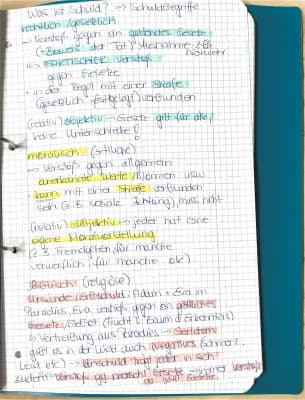 Was ist Schuld? → Schuldbegriffe
rechtlich/gesetzlich
→ Verstoß gegen ein geltendes Gesetz
(+ Beweis der Tat) Ausnahme z.B. Notwehr
↳ FAKTISCHER Verstoß
gegen Gesetze
• in der Regel mit einer Strafe
(gesetzlich festgelegt) verbunden
(relativ) objektiv → Gesetz gilt für alle,
keine Unterschiede!
moralisch (ethische)
→ Verstoß gegen allgemein
anerkannte Werte/Normen usw
→ kann mit einer Strafe verbunden
sein (z.B. soziale Ächtung), muss nicht
(relativ) subjektiv → jeder hat eine
eigene Moralvorstellung
(z.B. fremdgehen, für manche
verwerflich, für manche ok)
Biblisch (religiöse)
Ursünde/Erbschuld: Adam + Eva im
Paradies, Eva verstößt gegen ein göttliches
Gesetz/Gebot (Frucht v. Baum d. Erkenntnis)
→ Vertreibung aus Paradies → Seitdem
gibt es in der Welt auch Negatives (Schmerz,
Leid, etc) → Urschuld trägt jeder in sich
zudem: Verstoß geg. moralisch. Gesetz → immer Verstoß
gg. göttl. Gesetze